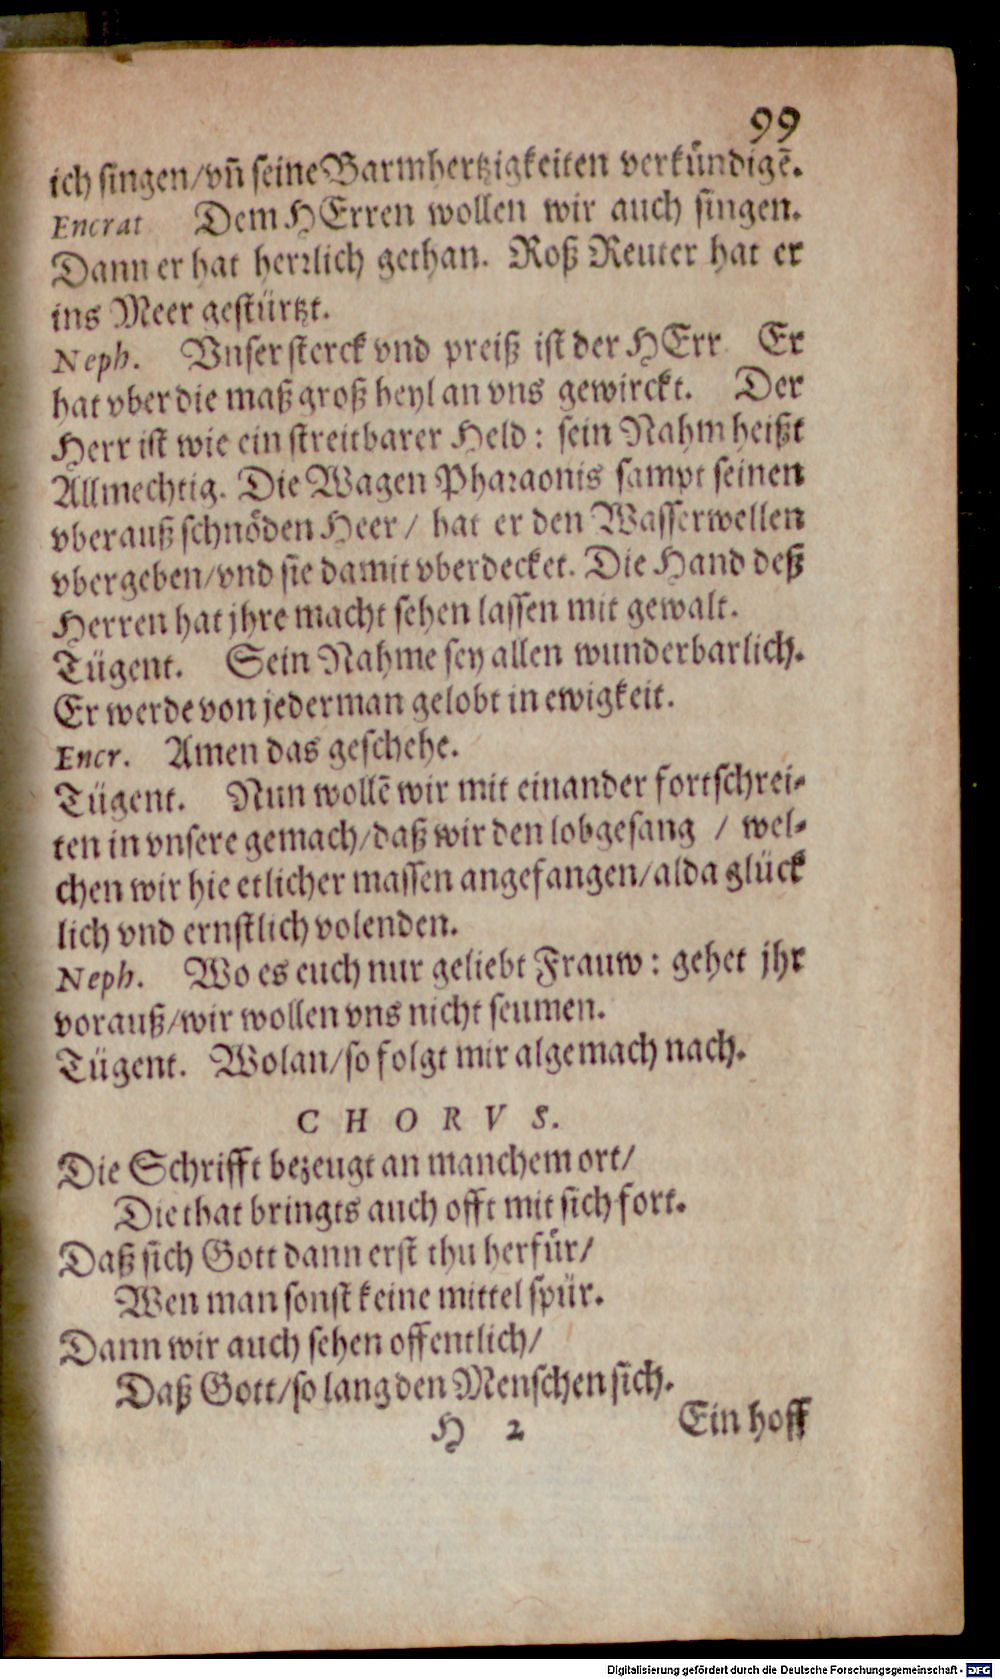 99
ich singen/vn̄ seine Barmhertzigkeiten verkündigē.
Encrat Dem HErren wollen wir auch singen.
Dann er hat herrlich gethan. Roß Reuter hat er
ins Meer gestürtzt.
Neph. Vnser sterck vnd preiß ist der HErr Er
hat vber die maß groß heyl an vns gewirckt. Der
Herr ist wie ein streitbarer Held: sein Nahm heißt
Allmechtig. Die Wagen Pharaonis sampt seinen
vberauß schnöden Heer/ hat er den Wasserwellen
vbergeben/vnd sie damit vberdecket. Die Hand deß
Herren hat jhre macht sehen lassen mit gewalt.
Tügent. Sein Nahme sey allen wunderbarlich.
Er werde von jederman gelobt in ewigkeit.
Encr. Amen das geschehe.
Tügent. Nun wollē wir mit einander fortschrei-
ten in vnsere gemach/daß wir den lobgesang / wel-
chen wir hie etlicher massen angefangen/alda glück
lich vnd ernstlich volenden.
Neph. Wo es euch nur geliebt Frauw: gehet jhr
vorauß/wir wollen vns nicht seumen.
Tügent. Wolan/so folgt mir algemach nach.
CHORVS.
Die Schrifft bezeugt an manchem ort/
Die that bringts auch offt mit sich fort.
Daß sich Gott dann erst thu herfür/
Wen man sonst keine mittel spür.
Dann wir auch sehen offentlich/
Daß Gott/so lang den Menschen sich.
H 2 Ein hoff
Digitalisierung gefördert durch die Deutsche Forschungsgemeinschaft - DFG